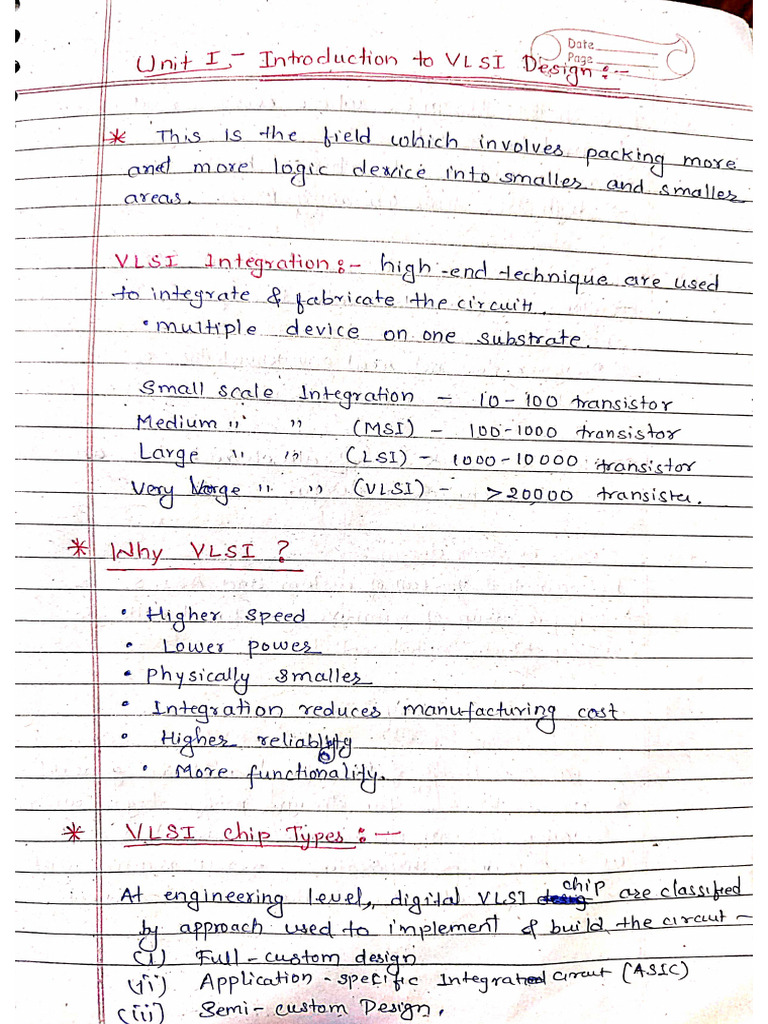 Date
Page
Unit I,- Introduction to VLSI Design:-
* This is the field which involves packing more
and more logic device into smaller and smaller
areas.
VLSI Integration:- high-end technique are used
to integrate & fabricate the circuit.
• multiple device on one substrate.
Small scale Integration - 10-100 transistor
Medium " " (MSI) - 100-1000 transistor
Large " " (LSI) - 1000-10000 transistor
Very large " " (VLSI) - >20000 transister.
* Why VLSI ?
• Higher speed
• Lower power
• Physically smaller
• Integration reduces manufacturing cost
• Higher reliability
• More functionality.
* VLSI chip Types:-
At engineering level, digital VLSI chip are classified
by approach used to implement & build the circut -
(i) Full-custom design
(ii) Application-specific Integrated circut (ASIC)
(iii) Semi-custom Design.